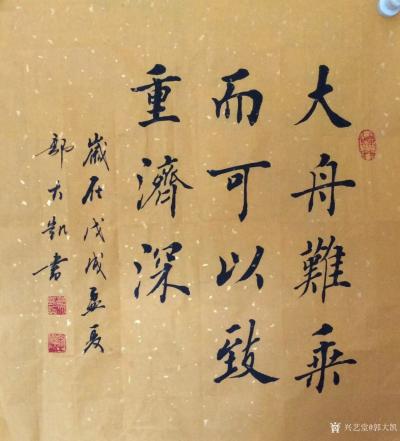 大舟難乘
而可以致
重濟深
歲在戊戌孟夏
郭大凱書
兴艺堂@郭大凯